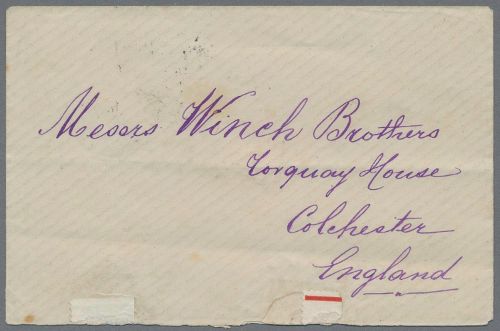 Messrs Winch Brothers
Torquay House
Colchester
England